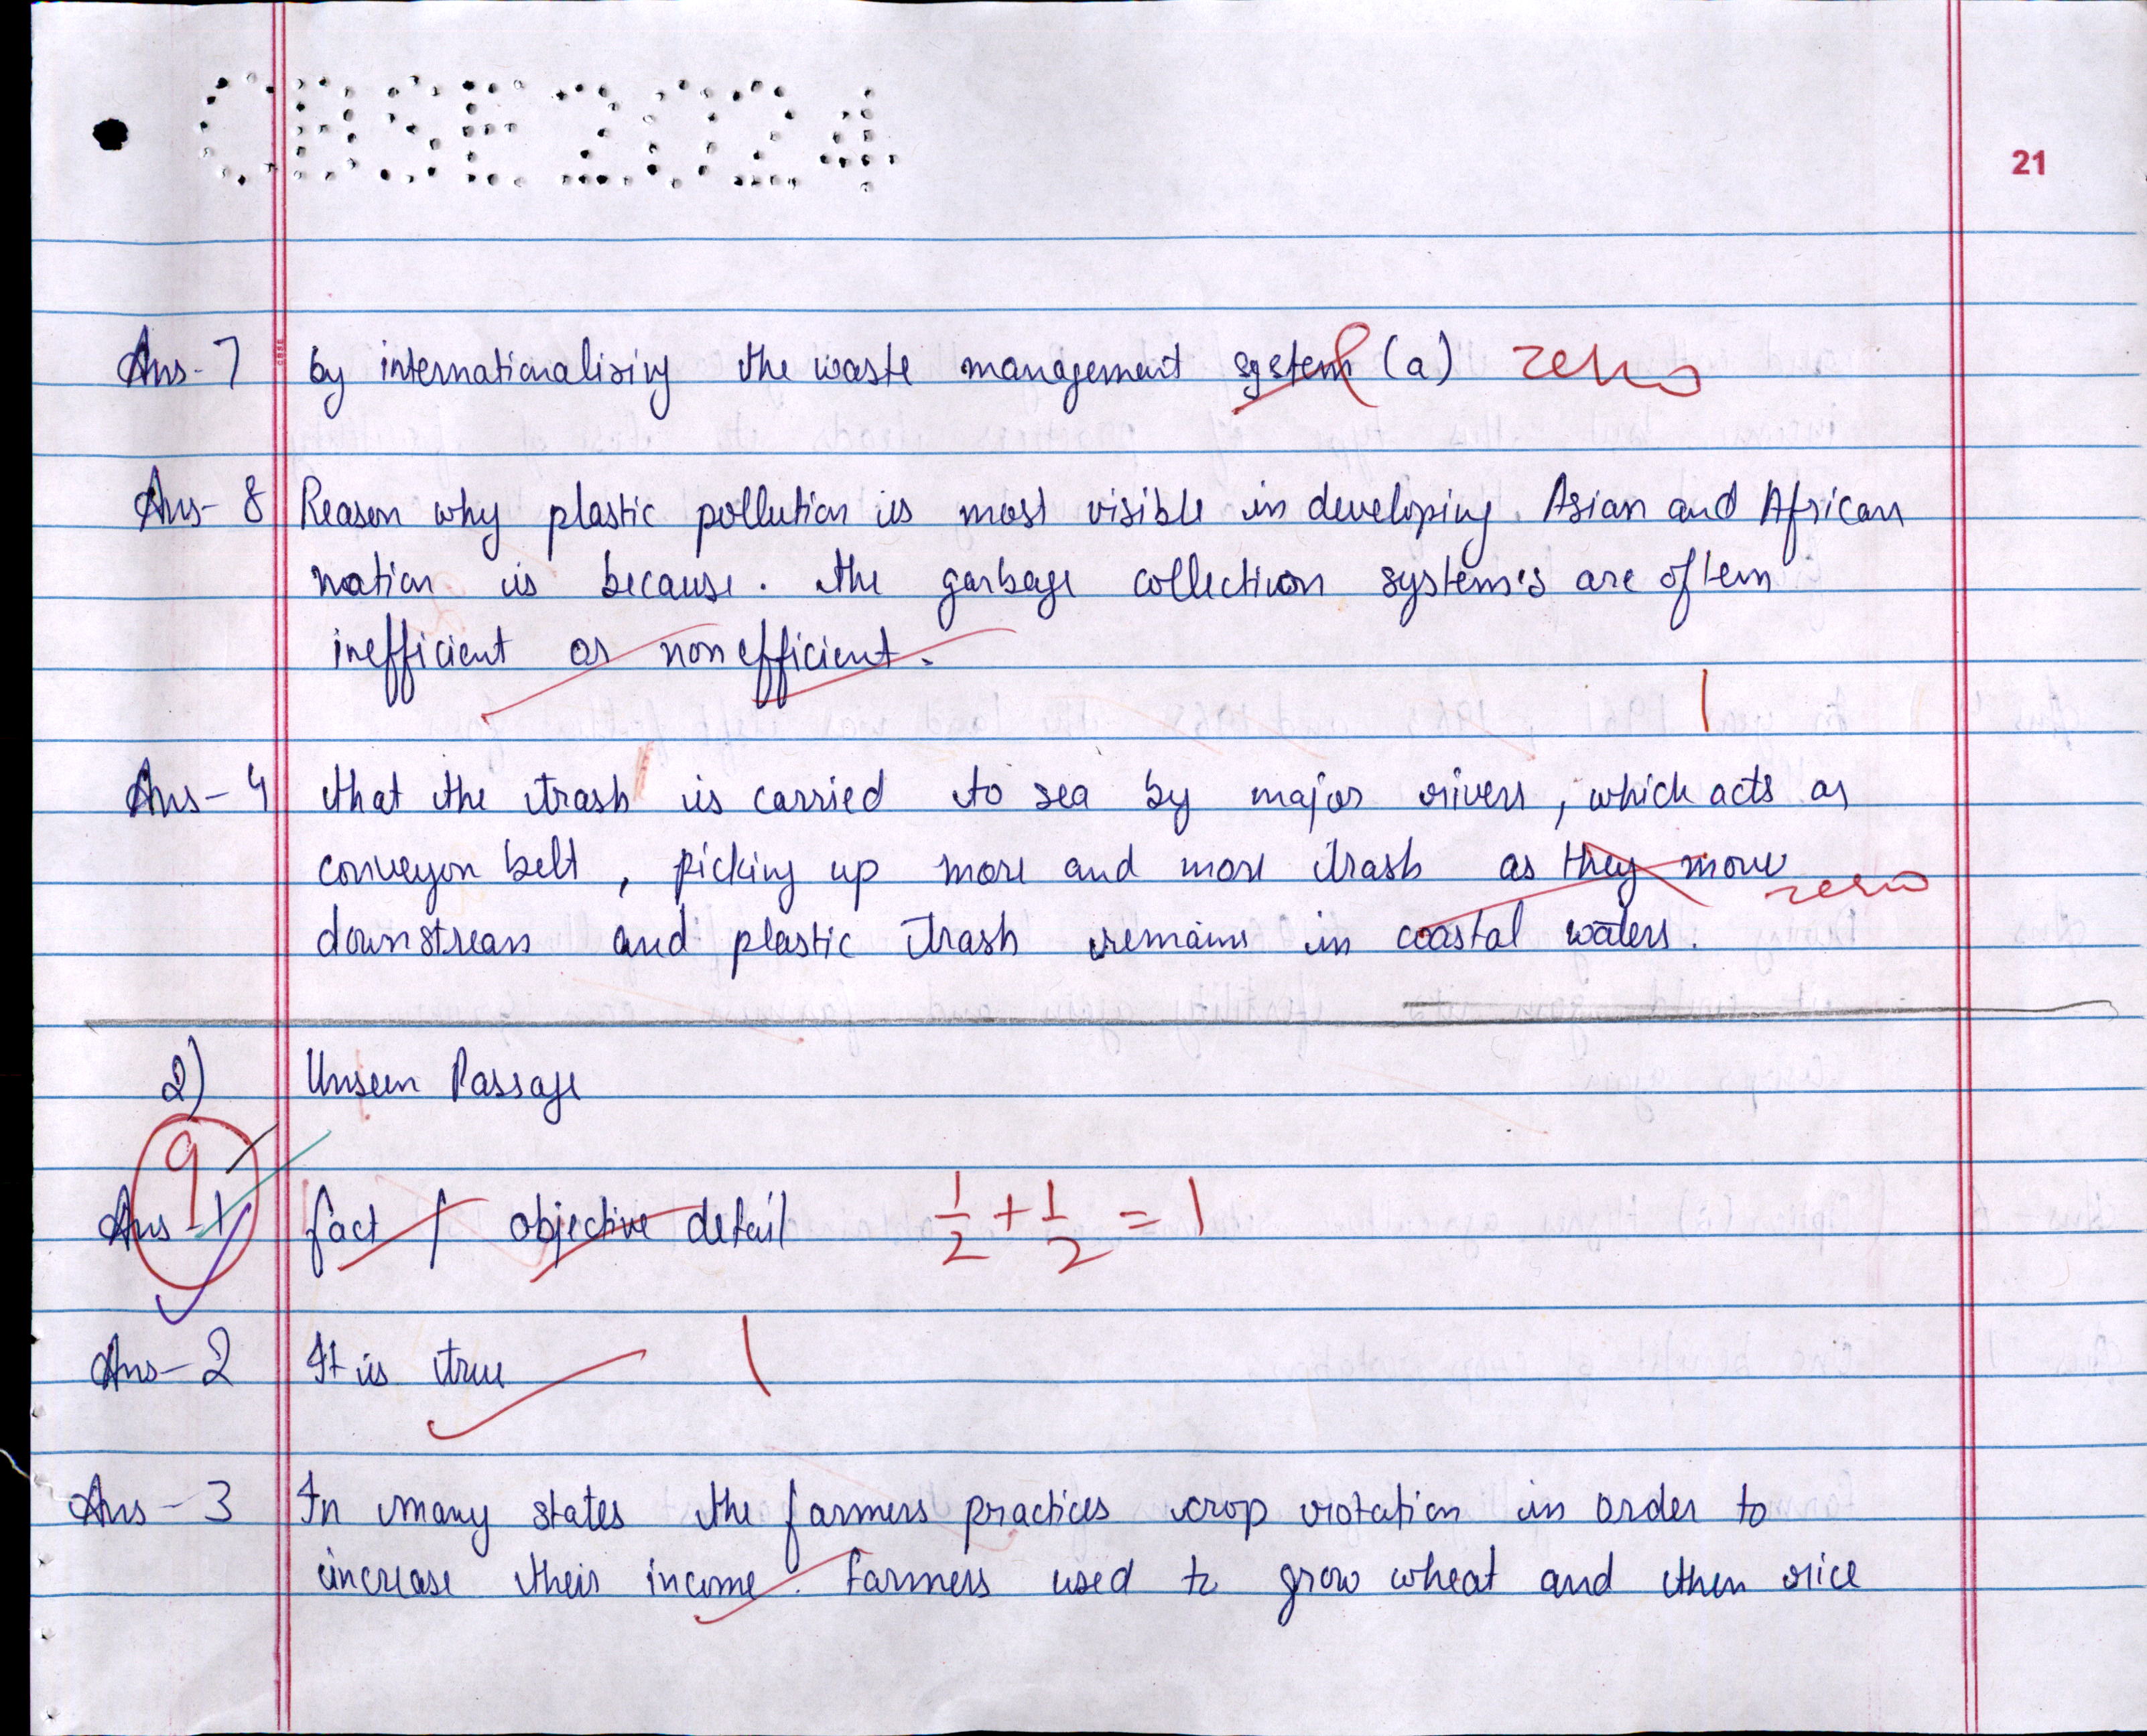 CBSE 2024
21
Ans-7 by internationalising the waste management system (a) zero
Ans-8 Reason why plastic pollution is most visible in developing Asian and African
nation is because. the garbage collection system's are often
inefficient or non efficient.
1
Ans-4 that the trash is carried to sea by major rivers, which acts as
conveyon belt, picking up more and more trash as they move
zero
downstream and plastic trash remains in coastal waters.
2) Unseen Passage
9
Ans-1 fact / objective detail 1/2 + 1/2 = 1
Ans-2 It is true 1
Ans-3 In many states the farmers practices crop rotation in order to
increase their income. farmers used to grow wheat and then rice